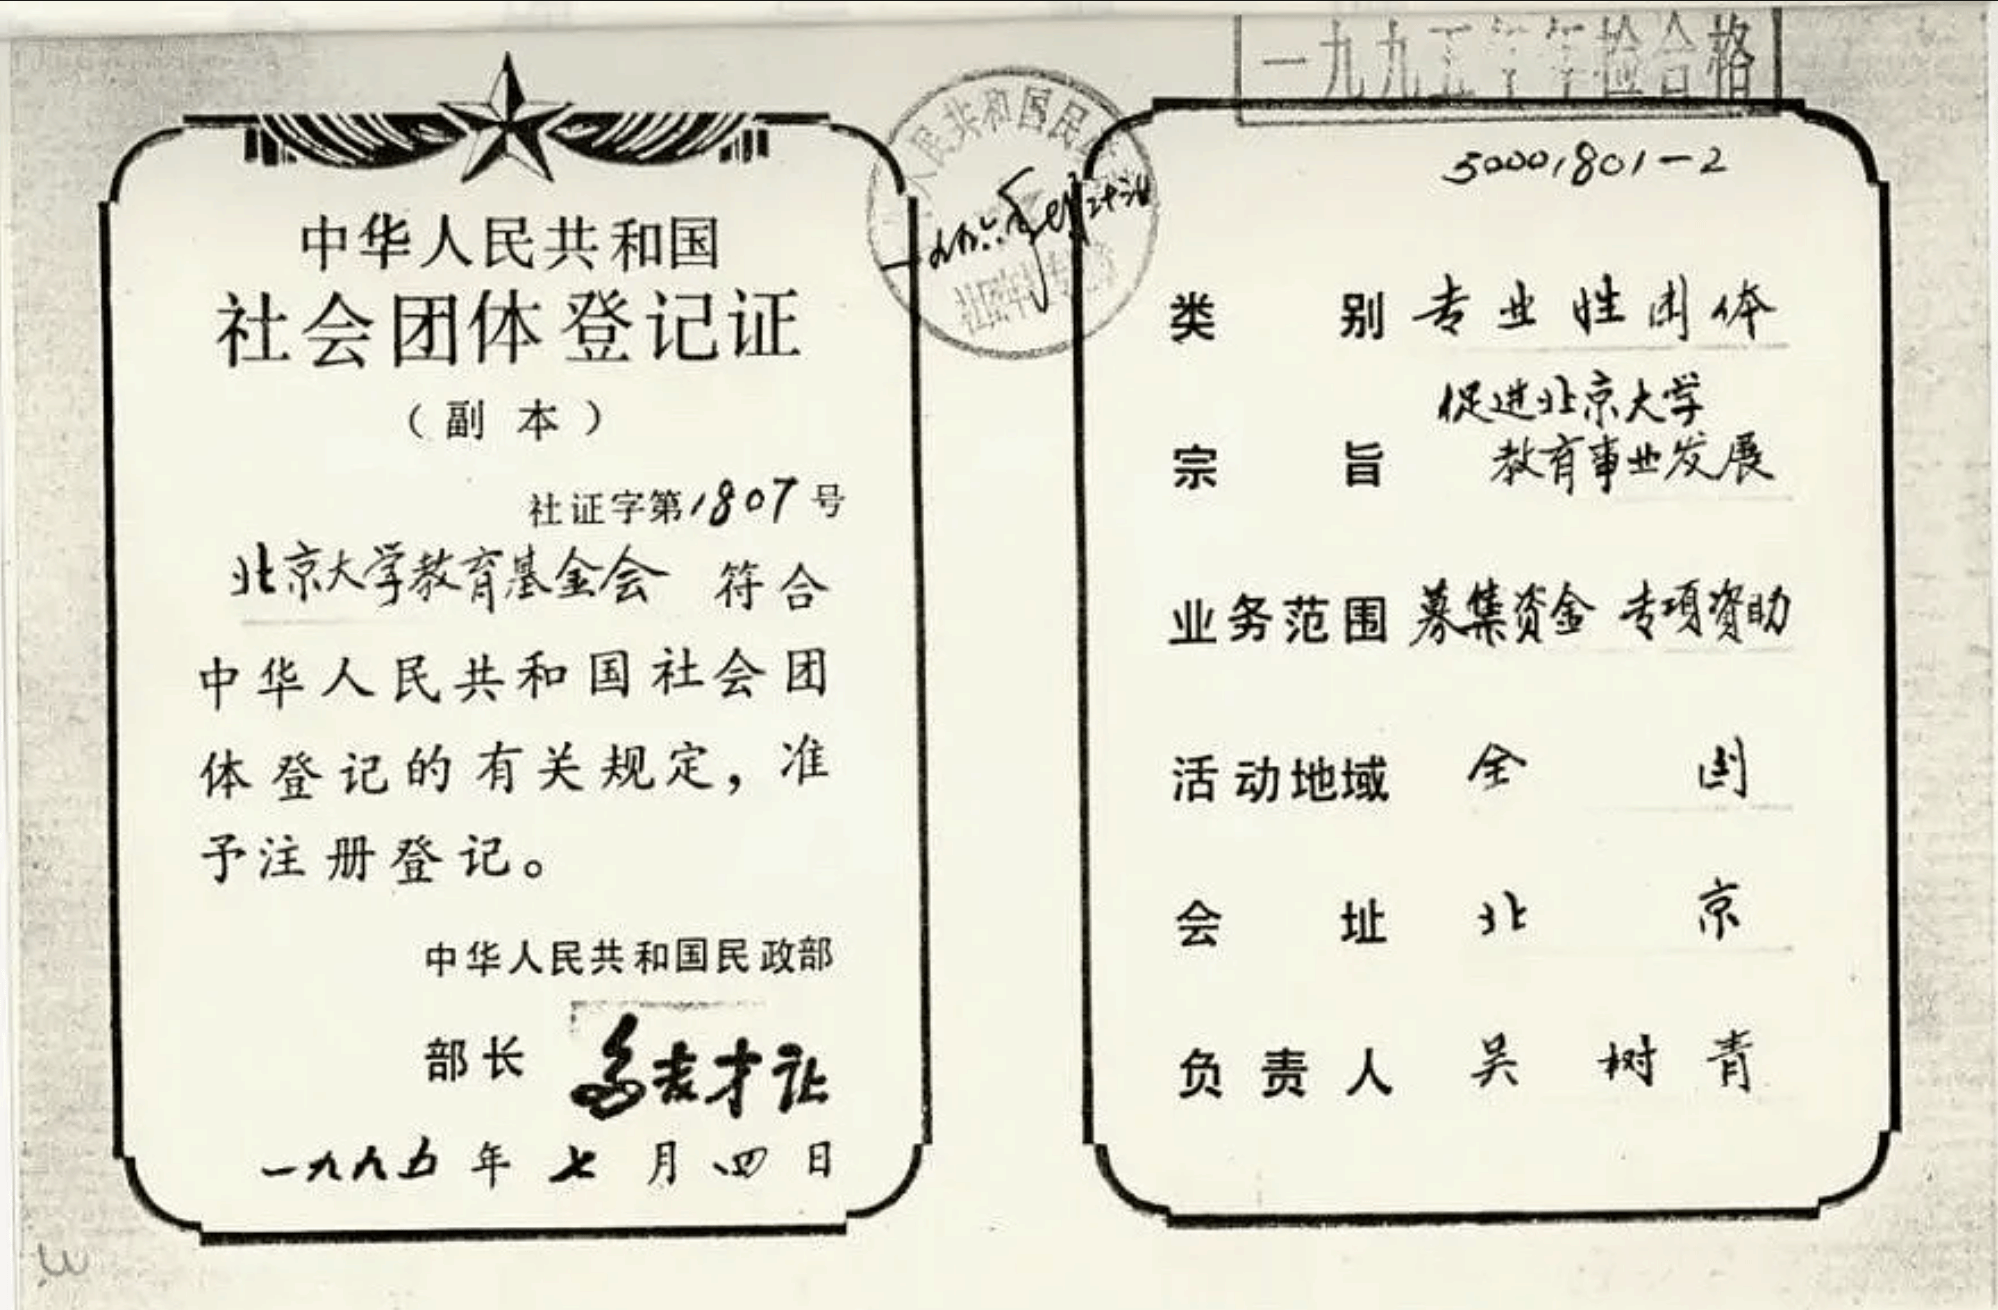 中华人民共和国
社会团体登记证
（副本）
社证字第1807号
北京大学教育基金会 符合
中华人民共和国社会团
体登记的有关规定，准
予注册登记。
中华人民共和国民政部
部长 多吉才让
一九九五年七月四日
人民共和国民政
一九九五年年检合格
50001801-2
类别 专业性团体
促进北京大学
宗旨 教育事业发展
业务范围 募集资金 专项资助
活动地域 全国
会址 北京
负责人 吴树青